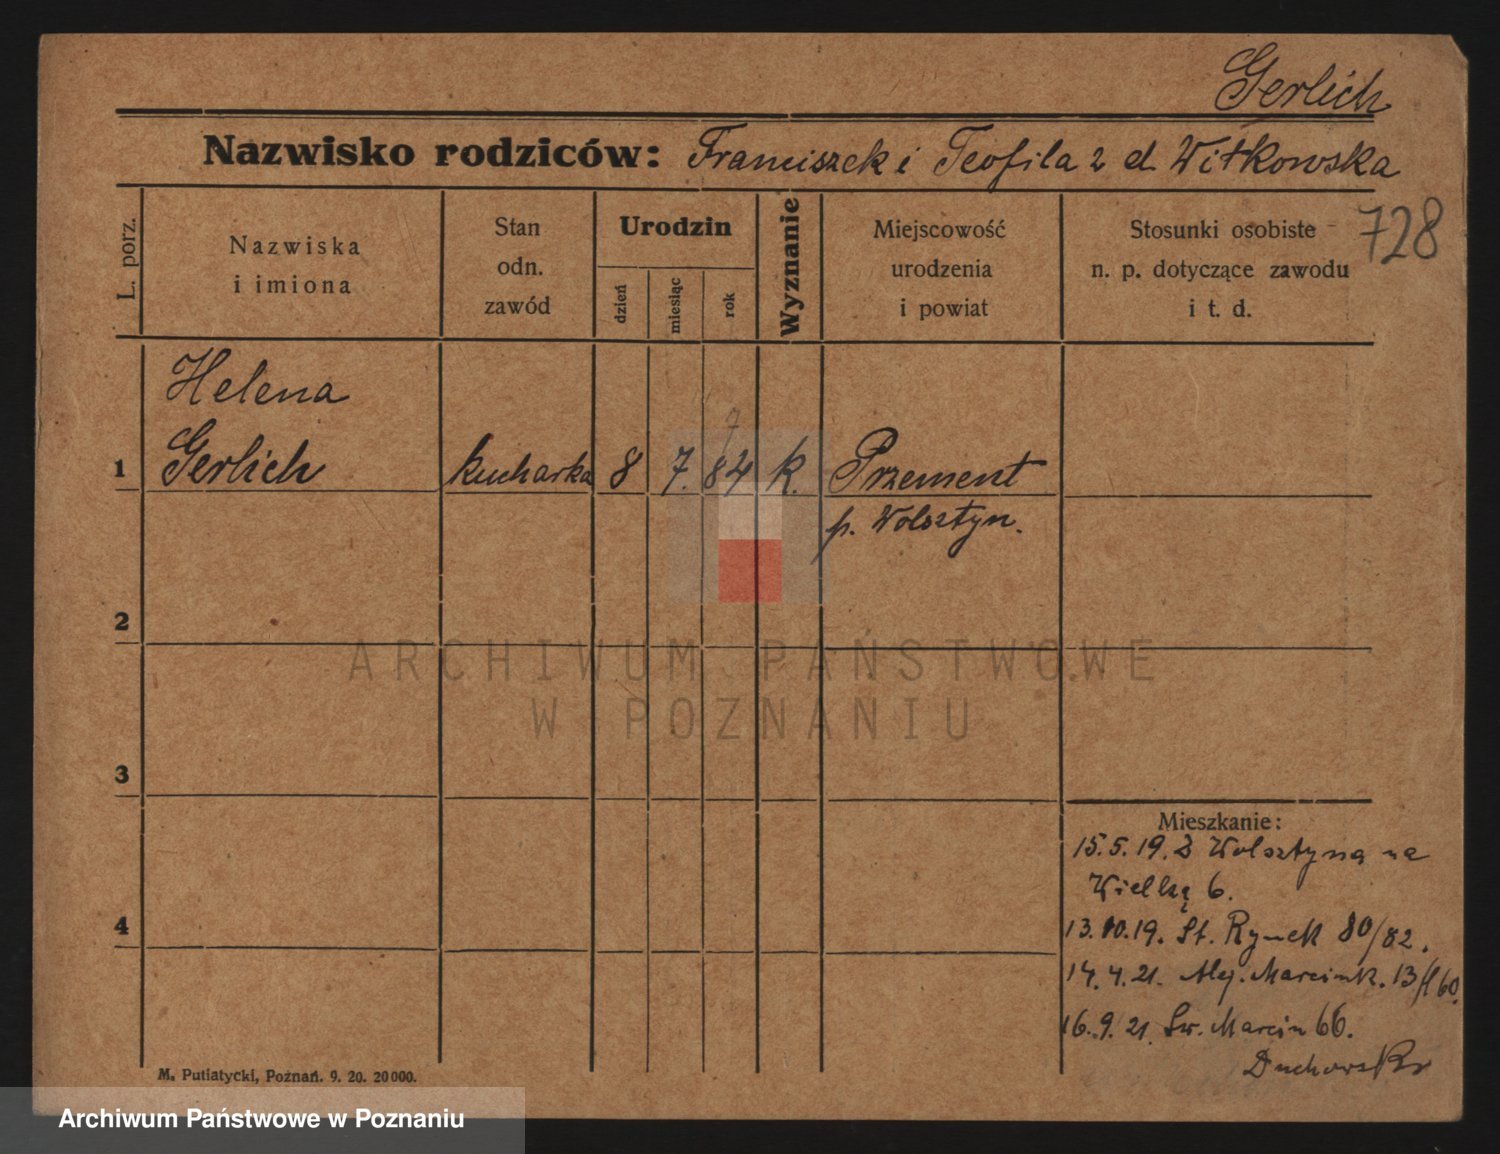 Gerlich
Nazwisko rodziców: Franciszek i Teofila z d Witkowska
728
L. porz.
Nazwiska
i imiona
Stan
odn.
zawód
Urodzin
dzień
miesiąc
rok
Wyznanie
Miejscowość
urodzenia
i powiat
Stosunki osobiste
n. p. dotyczące zawodu
i t. d.
Helena
7
1 Gerlich kucharka 8 7. 84 k. Przement
p. Wolsztyn.
2
ARCHIWUM PAŃSTWOWE
W POZNANIU
3
Mieszkanie:
15.5.19. Z Wolsztyna na
Wielką 6.
4
13.10.19. St. Rynek 80/82.
14.4.21. Alej. Marcink. 13
16.9.21. Św. Marcin 66.
M. Putiatycki, Poznań. 9. 20. 20000.
Archiwum Państwowe w Poznaniu